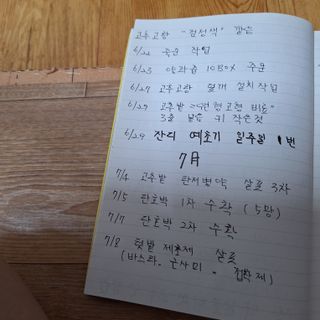 고추고랑 "검정색" 깔음
6/22 줄 작업
6/23 양파즙 10BOX 주문
6/27 고추고랑 덮개 설치작업
6/29 고추밭 "원형고형 비료"
3줄 키 작은것
6/29 잔디 예초기 일주일 1번
7月
7/4 고추밭 탄저병약 살포 3차
7/5 단호박 1차 수확 (5망)
7/7 단호박 2차 수확
7/8 텃밭 제초제 살포
(바스타 - 근사미 = 접착제)